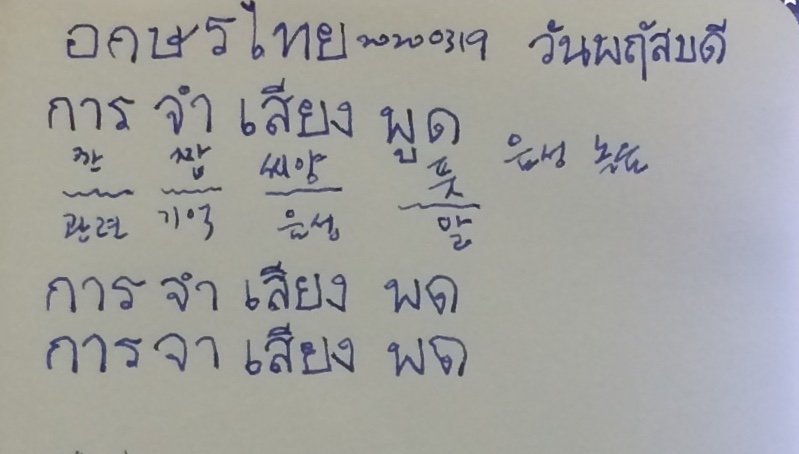 อกษรไทย 20200319 วันพฤัสบดี
การ จำ เสียง พูด
깐 짬 쎄양 풋 음성
관련 기억 음성 말
การ จำ เสียง พด
การ จา เสียง พด